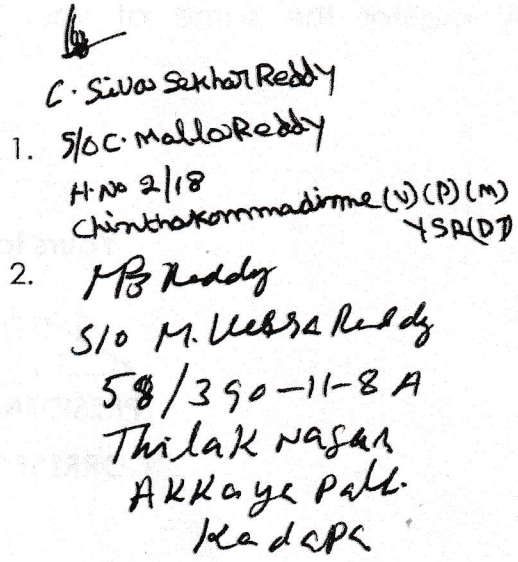 C. Siva Sekhar Reddy
1. S/o C. Malla Reddy
H.No 2/18
Chinthakommadinne (V) (P) (M)
YSR (DT)
2. MPB Reddy
S/o M. Reddy
58/390-11-8 A
Thilak Nagar
Akkaya Palli.
Kadapa